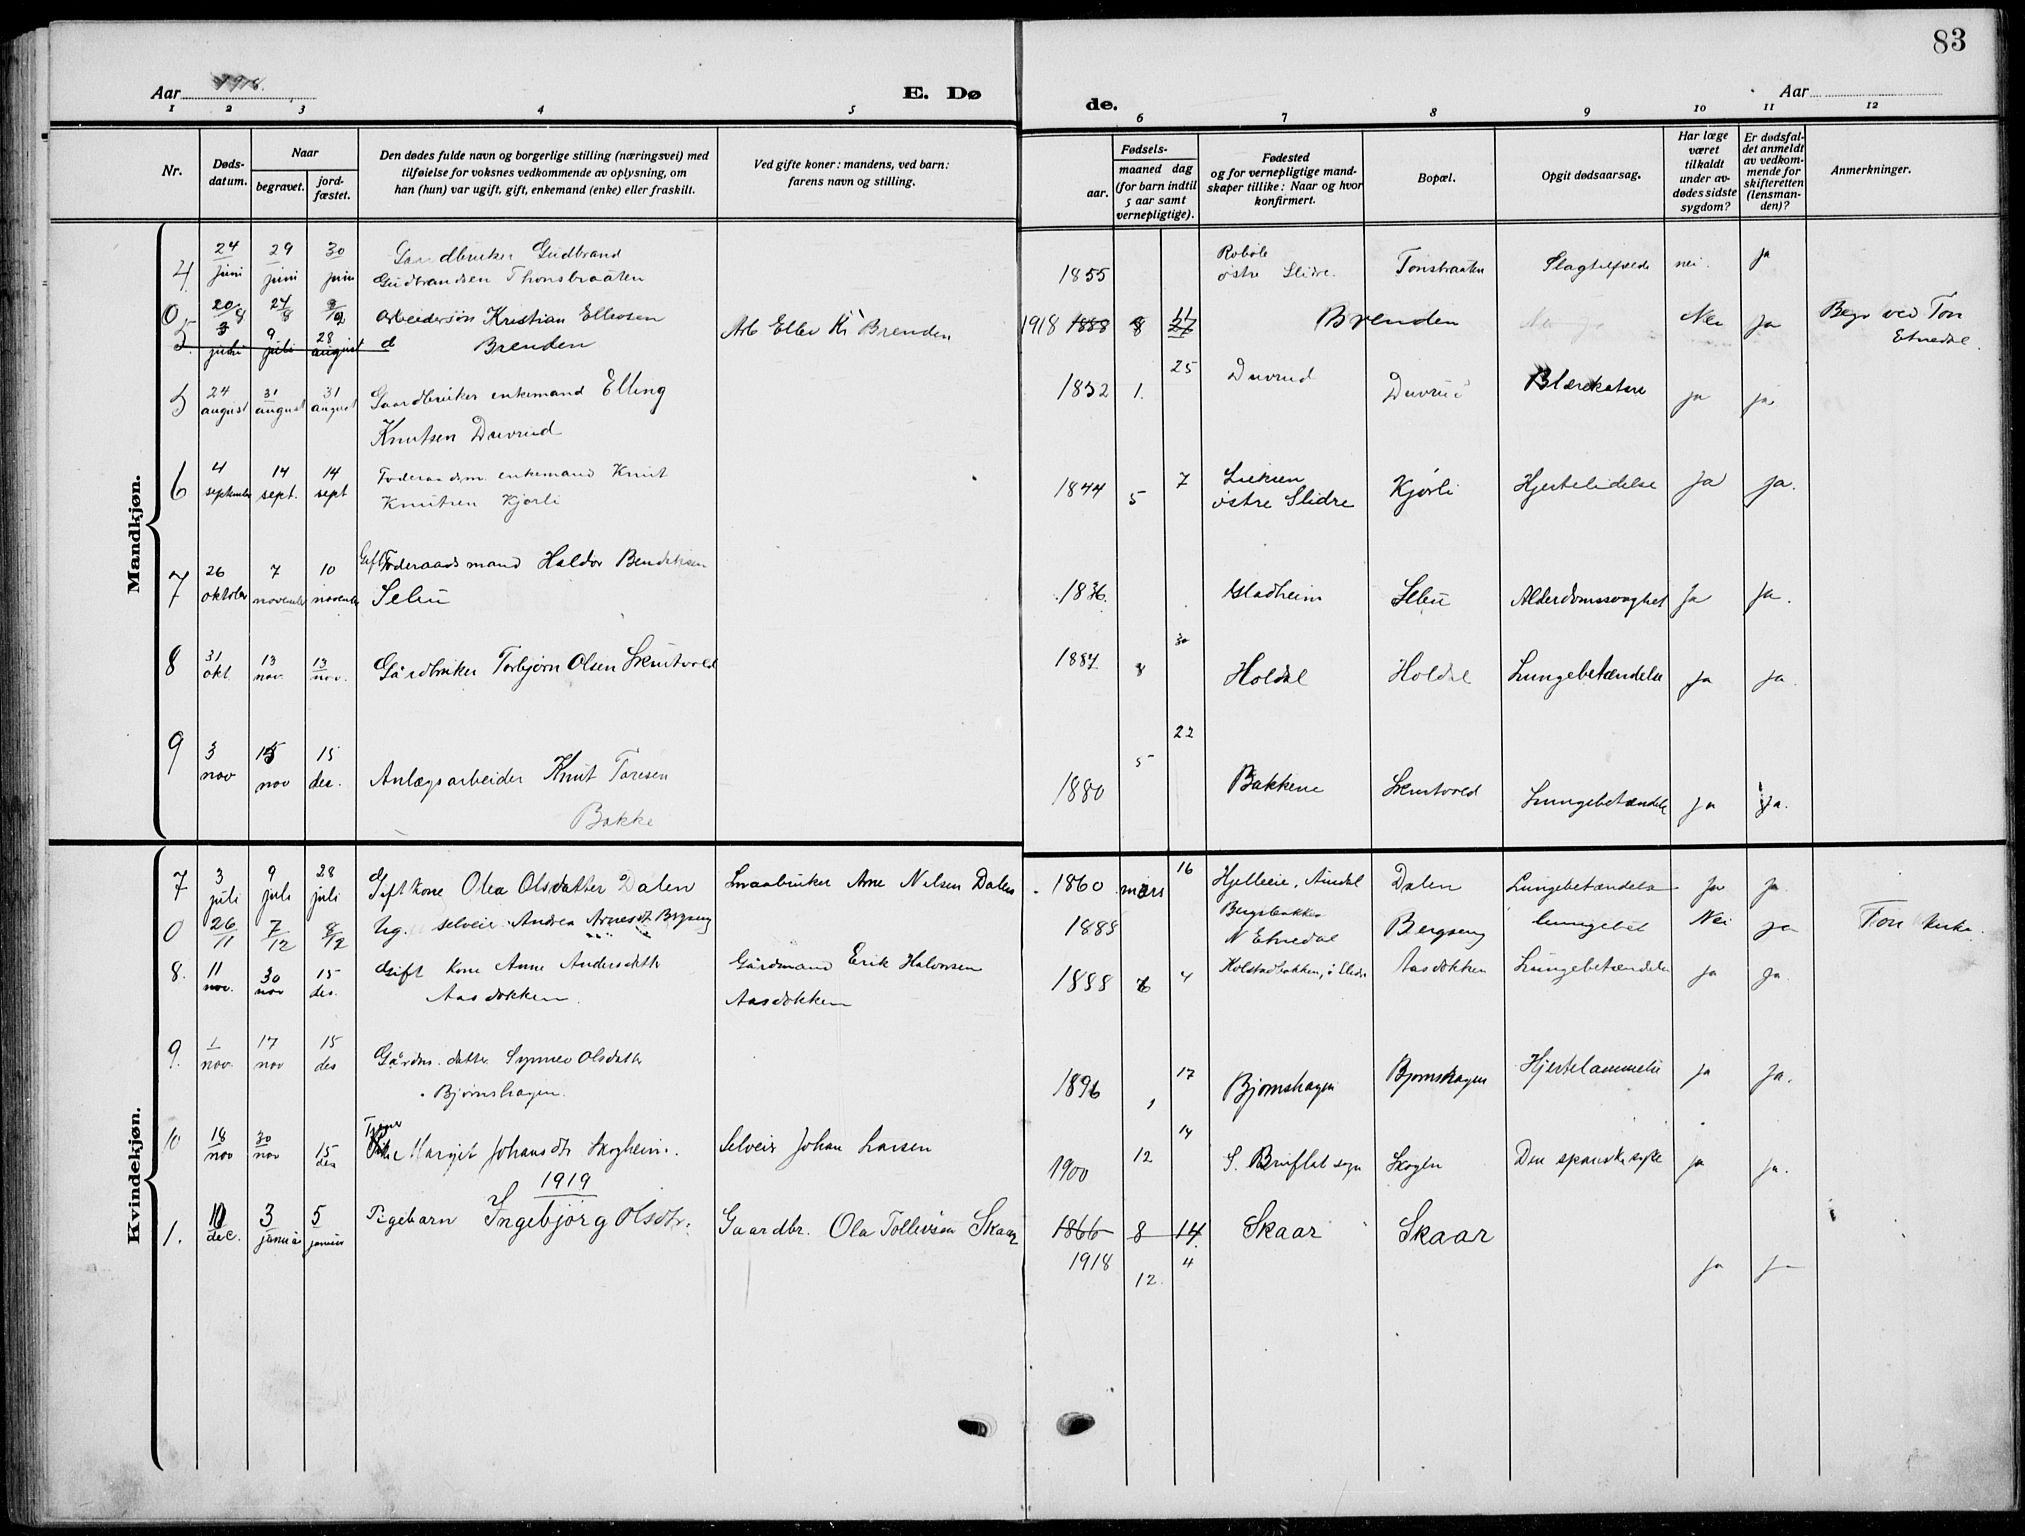 83
Aar 1918. E. Dø de. Aar
1 2 3 4 5 6 7 8 9 10 11 12
Nr.
Døds-
datum.
Naar
begravet.
jord-
fæstet.
Den dødes fulde navn og borgerlige stilling (næringsvei) med
tilføielse for voksnes vedkommende av oplysning, om
han (hun) var ugift, gift, enkemand (enke) eller fraskilt.
Ved gifte koner: mandens, ved barn:
farens navn og stilling.
Fødsels-
aar.
maaned dag
(for barn indtil
5 aar samt
vernepligtige).
Fødested
og for vernepligtige mand-
skaper tillike: Naar og hvor
konfirmert.
Bopæl.
Opgit dødsaarsag.
Har læge
været
tilkaldt
under av-
dødes sidste
sygdom?
Er dødsfal-
det anmeldt
av vedkom-
mende for
skifteretten
(lensman-
den)?
Anmerkninger.
Mandkjøn.
4 24 juni 29 juni 30 juni Gaardbruker Gudbrand
Gudbrandsen Thonsbraaten 1855 Robøle
østre Slidre. Tonsbraaten Slagtilfælde nei. ja
0 20/8 24/8 Arbeidersøn Kristian Ellevsen
Brenden Arb Ellev Kr Brenden 1918 1888 8 11 Brenden Nei ja Begr ved Ton
Etnedal.
5. 3 juli 9 juli 28 august d
5 24 august 31 august 31 august Gaardbruker enkemand Elling
Knutsen Duvrud 1832 1. 25 Duvrud Duvrud Blærekatarr ja ja.
6 4 september 14 sept. 14 sept Foderaadsm. enkemand Knut
Knutsen Kjørli 1844 5 7
østre Slidre Kjørli Hjertelidelse Ja ja.
7 26 oktober 7 november 10 november Gift Foderaadsmand Haldor Bendiksen
Sebu 1836. Gladheim Sebu Alderdomssvaghet Ja ja.
8 31 okt 13 nov. 13 nov. Gårdbruker Torbjørn Olsen Skrutvold 1887 8 30 Holdal Holdal Lungebetændelse ja ja.
9 3 nov 15 nov 15 des. Anlægsarbeider Knut Toresen
Bakke 1880 5 22 Bakkene Skrutvold Lungebetændelse ja ja.
Kvindekjøn.
7 3 juli 9 juli 28 juli Gift kone Olea Olsdatter Dalen Smaabruker Arne Nilsen Dalen 1860 mars 16 Hjelleeie, Aurdal Dalen Lungebetændelse ja ja.
0 26/11 7/12 8/12 Ug. selveier Andrea Arnesdt Bergseng 1885 Bergsbakken
N Etnedal Bergseng lungebet Nei ja Ton kirke.
8. 11 nov. 30 nov 15 des. Gift kone Anne Andersdatter
Aasdokken. Gårdmand Erik Halvorsen
Aasdokken 1888 6 4 Holstadbakken, ø Slidre Aasdokken Lungebetændelse ja ja.
9. 1 nov. 17 nov 15 des Gårdm. datter Synnev Olsdatter
Bjørnshagen. 1896 1 17 Bjørnshagen Bjørnshagen Hjertelammelse ja ja.
10 18 nov 30 nov 15 des Tjener
Pike Margit Johansdt Skogheim. Selveier Johan Larsen 1900 12 14 S. Bruflat sogn Skogen Den spanske syke ja ja.
1919
1. 10 dec. 3 januar 5 januar Pigebarn Ingebjørg Olsdtr. Gaardbr. Ola Tollevsen Skaar 1866 8 14 Skaar Skaar
1918 12. 4 ja ja